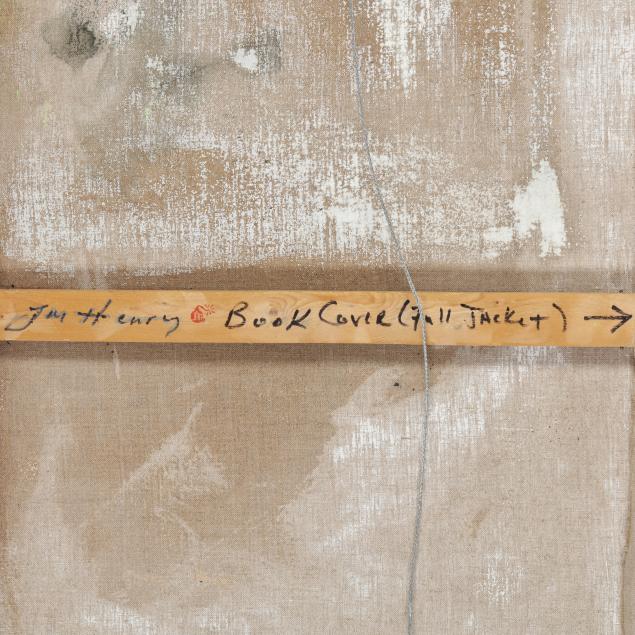 Jim Henry Book Cover (Full Jacket) →